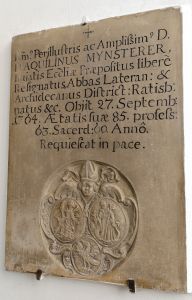 Perillustris ac Amplissim9 D.
D'AQUILINUS MYNSTERER,
Ecclïæ Præpositus libere
Resignatus Abbas Lateran: &
Archidecanus District: Ratisb-
natus &c. Obijt 27. Septemb
1764. Ætatis suæ 85. profess:
63. Sacerd: 60 Annô.
Requiescat in pace.